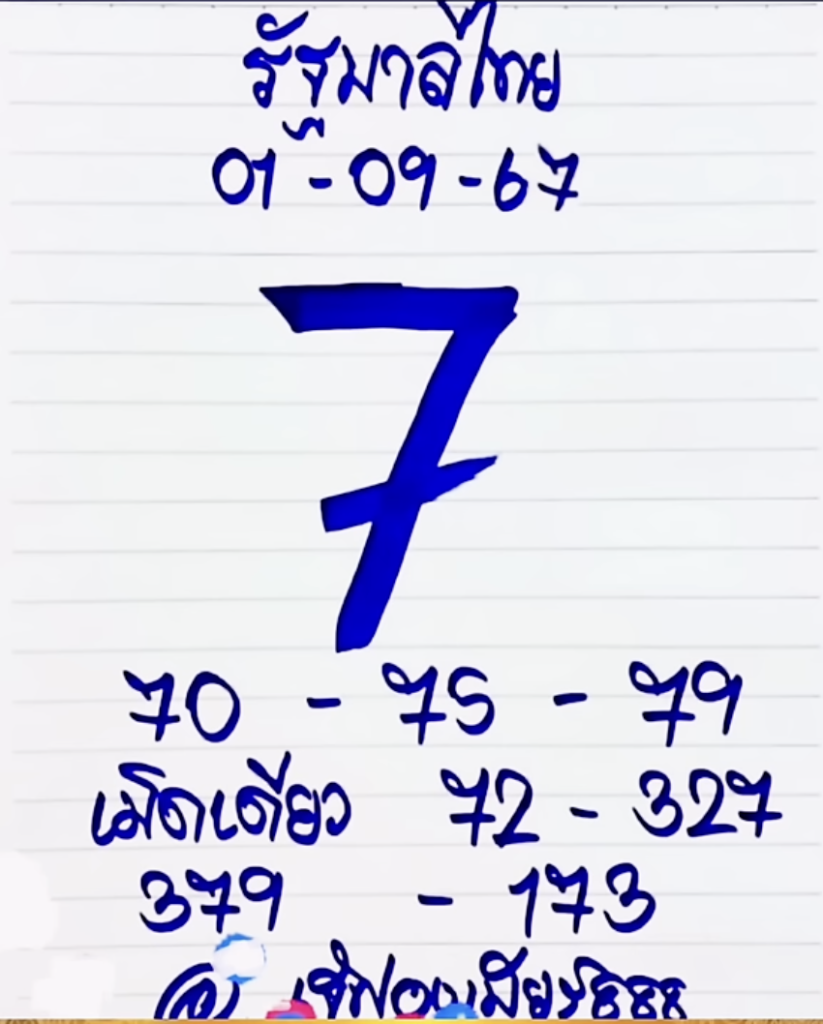 รัฐบาลไทย
01-09-67
7
70 - 75 - 79
เม็ดเดียว 72 - 327
379 - 173
@